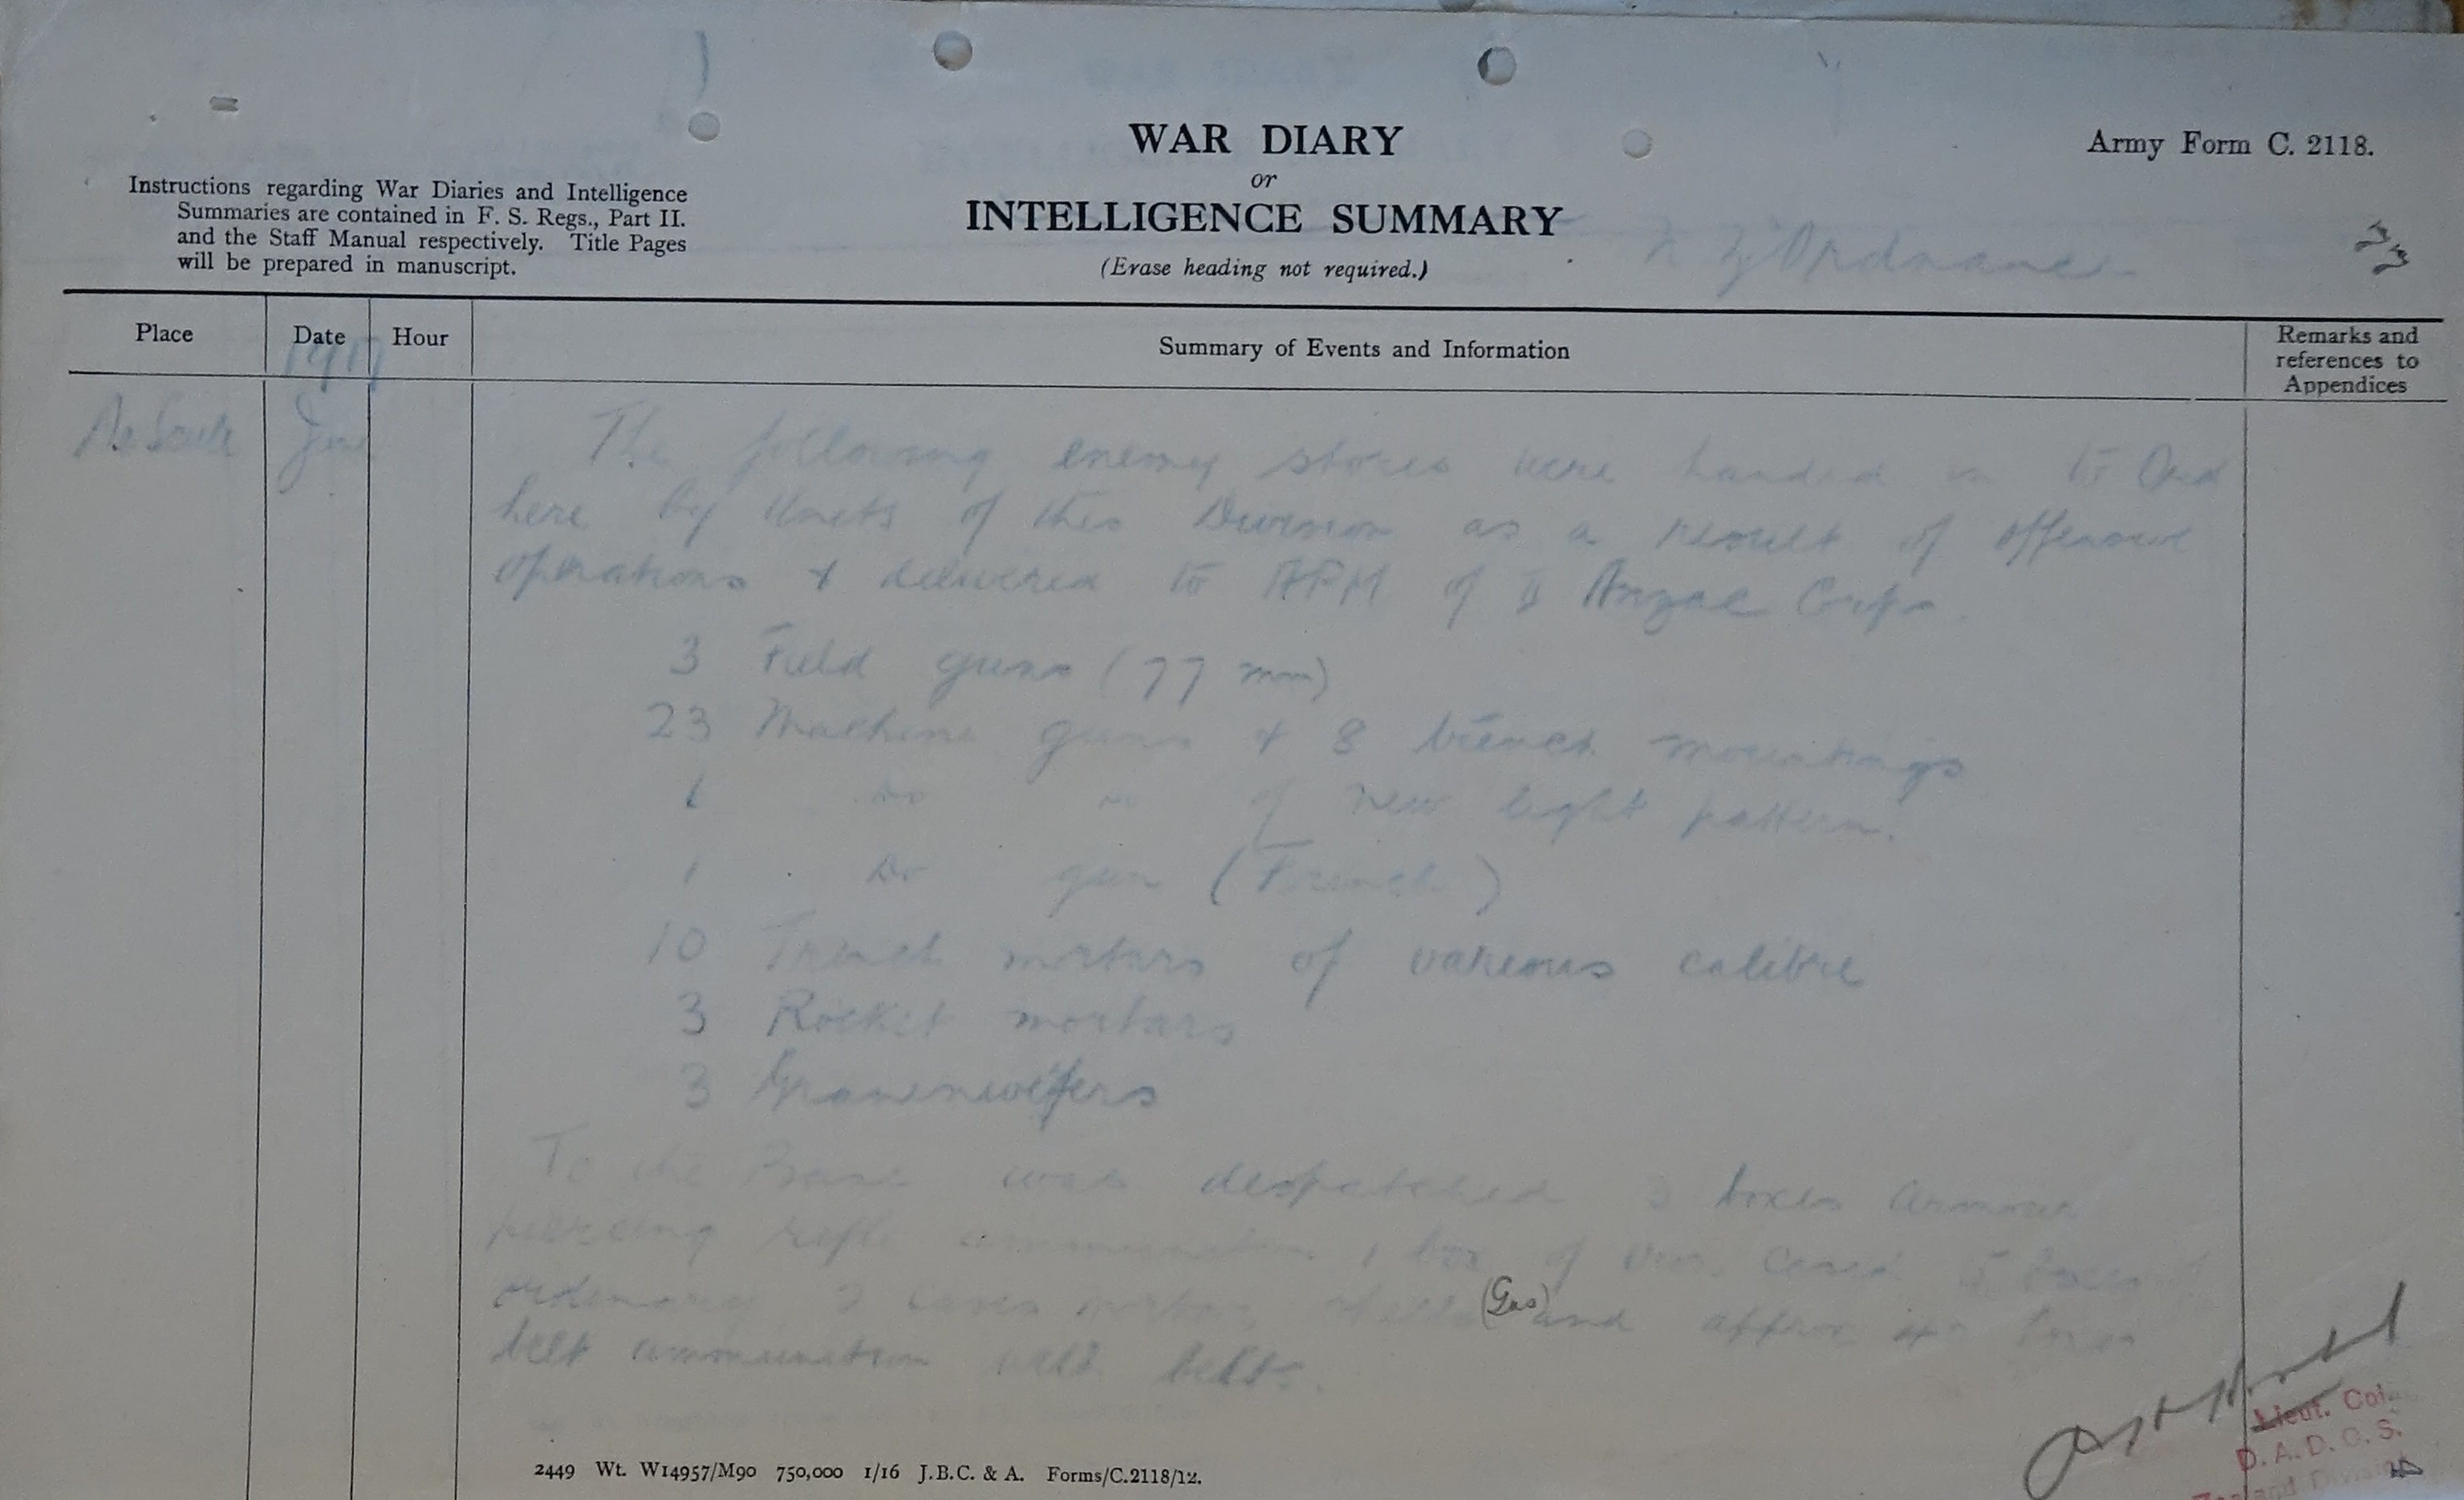 WAR DIARY
or
INTELLIGENCE SUMMARY
(Erase heading not required.)
Army Form C. 2118.
Instructions regarding War Diaries and Intelligence
Summaries are contained in F. S. Regs., Part II.
and the Staff Manual respectively. Title Pages
will be prepared in manuscript.
N Z Ordnance
Place Date Hour Summary of Events and Information Remarks and
references to
Appendices
1917
De Seule June
The following enemy stores were handed in to Ord
here by Units of this Division as a result of offensive
operations & delivered to APM of II Anzac Corps.
3 Field guns (77 mm)
23 Machine guns & 8 trench mountings
1 do do of new light pattern.
1 Do gun (French)
10 Trench mortars of various calibre
3 Rocket mortars
3 Granenwerfers
To the Base was despatched 3 boxes armour
piercing rifle ammunition, 1 box of cased 5 boxes
ordinary 2 cases mortar shells (Gas) and approx boxes
belt ammunition with belts.
Lieut. Col.
D. A. D. O. S.
Zealand Division
2449 Wt. W14957/M90 750,000 1/16 J.B.C. & A. Forms/C.2118/12.